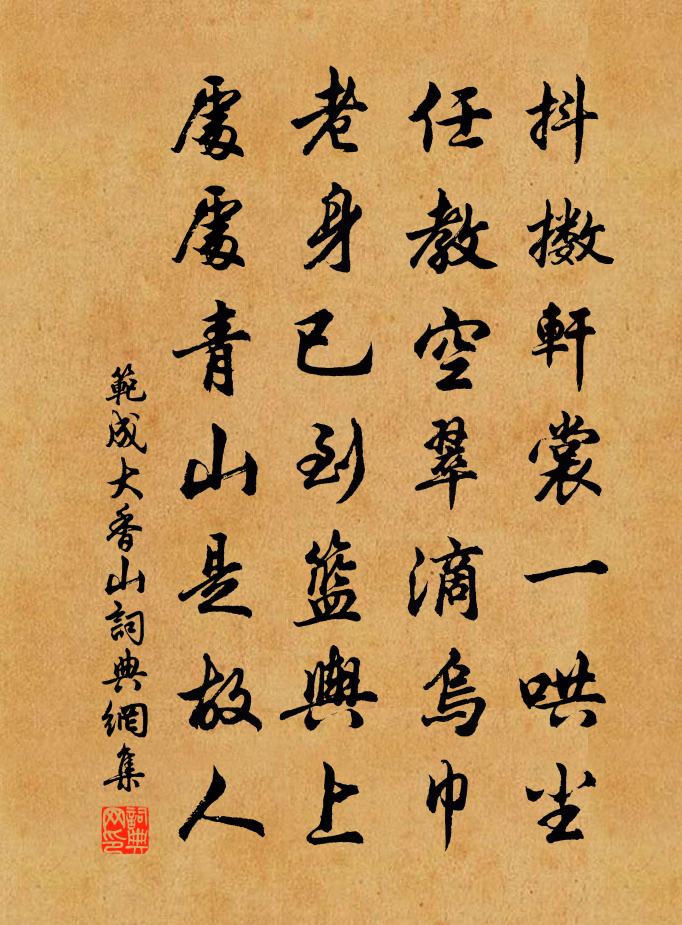 抖擻軒裳一哄尘
任教空翠滴烏巾
老身已到籃輿上
處處青山是故人
範成大香山詞典網集
詞典网印